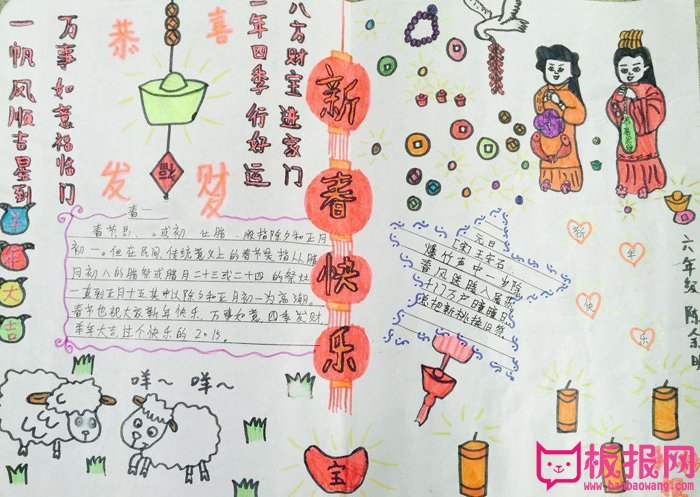 一帆风顺吉星到
万事如意福临门
恭喜
发财
福
一年四季行好运
八方财宝进家门
新春快乐
羊年大吉
春
初一。但在民间,传统意义上的春节是指从腊
月初八的腊祭或腊月二十三或二十四的祭灶
一直到正月十五,其中以除夕和正月初一为高潮。
春节也祝大家新年快乐、万事如意、四季发财
羊年大吉过个快乐的2015。
元日
[宋]王安石
爆竹声中一岁除
春风送暖入屠苏
千门万户曈曈日
总把新桃换旧符。
新年快乐
六年级 陈
咩~ 咩~
宝
板报网
www.banbaowang.com